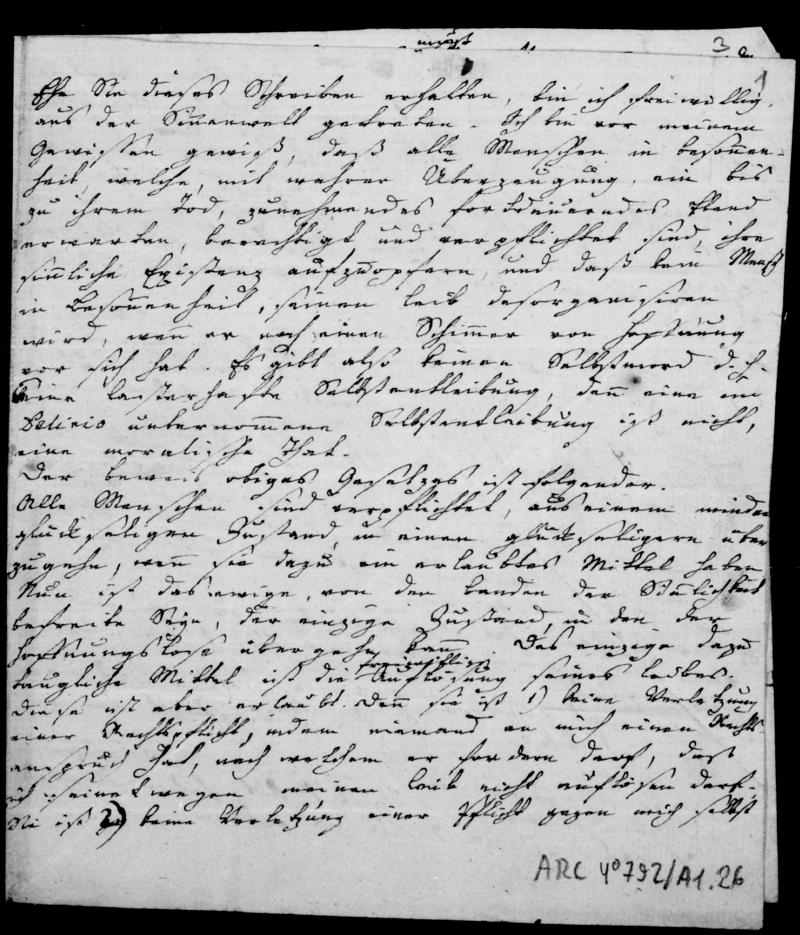 3
1
Ehe Sie dieses Schreiben erhalten, bin ich freiwillig
aus der Sinnenwelt getreten. Ich bin vor meinem
Gewissen gewiß, daß alle Menschen in besonnen-
heit, welche, mit wahrer Überzeugung, ein bis
zu ihrem Tod, zunehmendes fortdauerndes Elend
erwarten, berechtigt und verpflichtet sind, ihre
sinnliche Existenz aufzuopfern, und daß kein Mensch
in besonnenheit, seinen leib desorganisiren
wird, wenn er noch einen Schimmer von Hoffnung
vor sich hat. Es gibt also keinen Selbstmord d. h.
keine lasterhafte Selbstentleibung, denn eine im
Delirio unternommene Selbstentleibung ist nicht,
eine moralische That.
Der beweis obiges Gesetzes ist folgender.
Alle Menschen sind verpflichtet, aus einem minder
glückseligen Zustand, in einen glückseligern über
zugehn, wenn sie dazu ein erlaubtes Mittel haben
Nun ist das ewige, von den banden der Sinnlichkeit
befreite Seyn, der einzige Zustand, in den der
hoffnungslose übergehn kann. Das einzige dazu
taugliche Mittel ist die freiwillige Auflösung seines leibes.
diese ist aber erlaubt. Denn sie ist 1) keine Verletzung
einer Rechtspflicht, indem niemand an mich einen Rechts-
anspruch hat, nach welchem er fordern darf, daß
ich seinetwegen meinen leib nicht auflösen darf.
Sie ist 2) keine Verletzung einer Pflicht gegen mich selbst
ARC 4° 792/A1.26